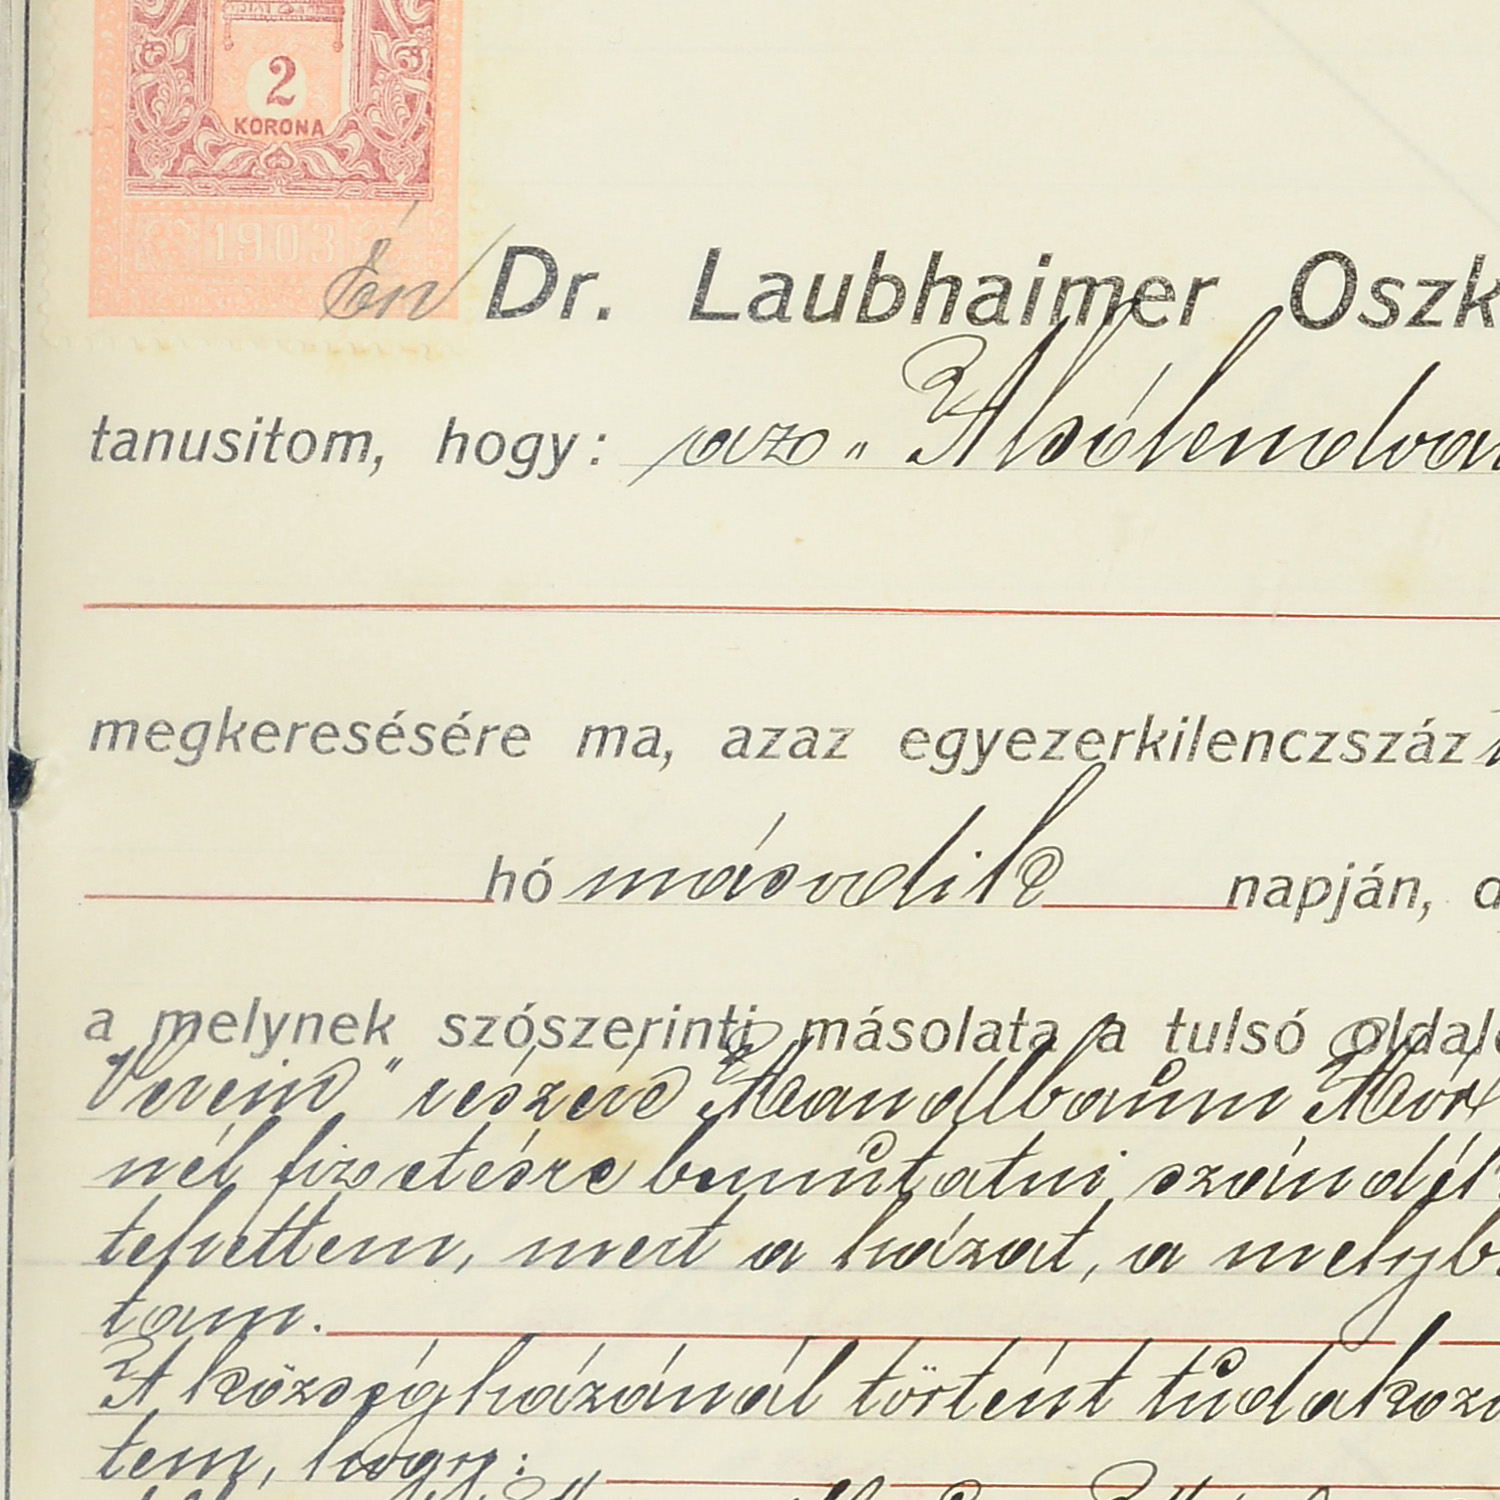 2
KORONA
1903
Én Dr. Laubhaimer Oszk
tanusitom, hogy: az „Alsólendvai
megkeresésére ma, azaz egyezerkilenczszáz
hó második napján,
a melynek szószerinti másolata a tulsó oldal
Verein" részére Mandlbaum Mór
nél fizetésre bemutatni szándék
tehettem, mert a házat, a melyb
tam.
A községházánál történt tudakozó
tem, hogy: